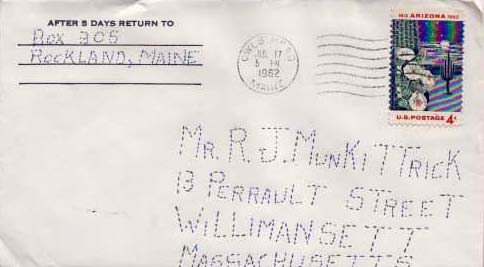 AFTER 5 DAYS RETURN TO
Box 305
ROCKLAND, MAINE
OWLS HEAD
JUL 17
5 PM
1962
MAINE
1912 ARIZONA 1962
U.S. POSTAGE 4¢
MR. R. J. MUNKITTRICK
13 PERRAULT STREET
WILLIMANSETT
MASSACHUSETTS